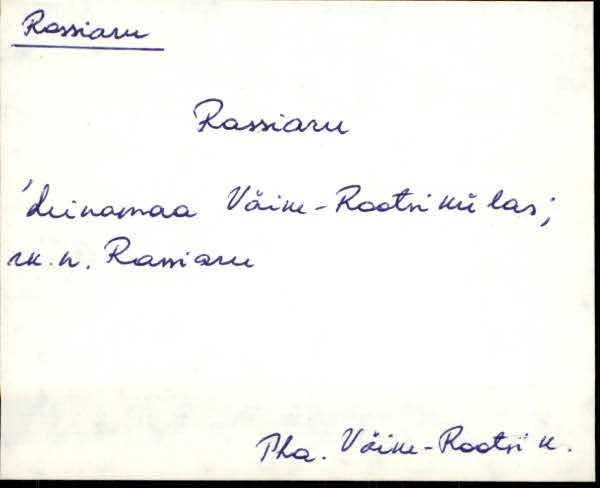 Rassiaru
Rassiaru
'heinamaa Väike-Rootsi külas;
rk. n. Rassiaru
Pha. Väike-Rootsi k.